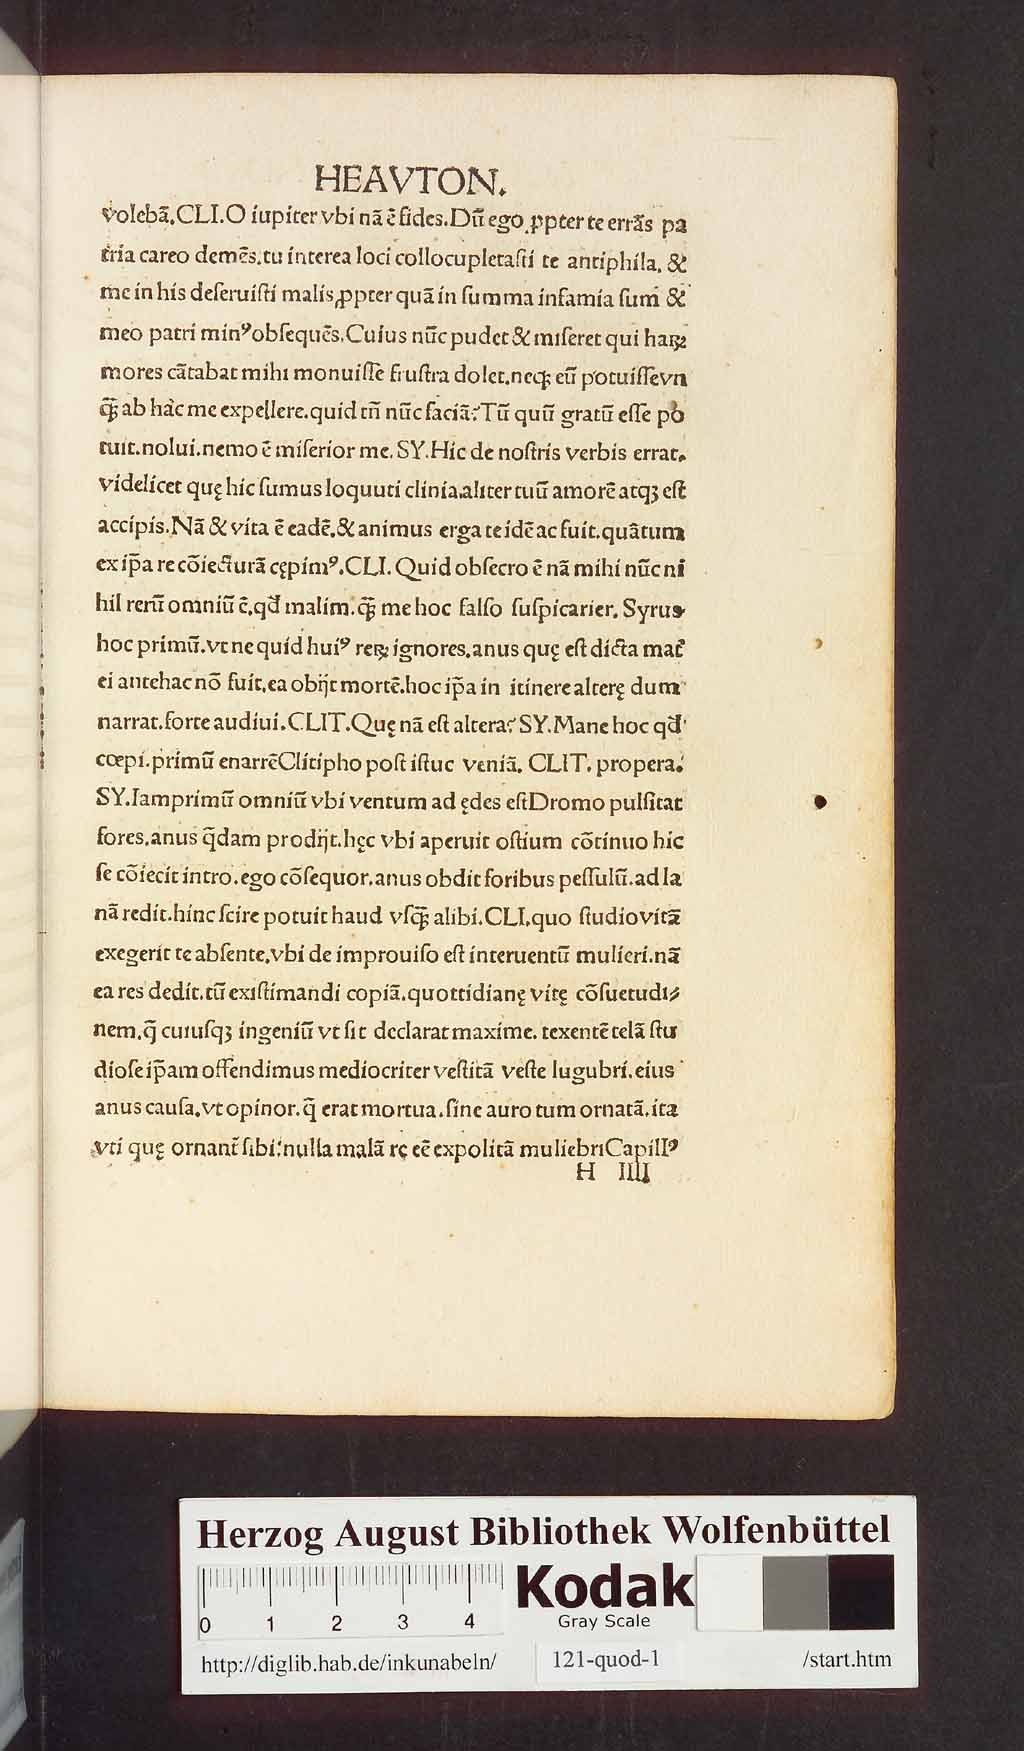 HEAVTON.
volebã. CLI. O iupiter vbi nã ẽ fides. Dũ ego ꝓpter te errãs pa
tria careo demẽs. tu interea loci collocupletaſti te antiphila. &
me in his deſeruiſti malis, ꝓpter quã in ſumma infamia ſum &
meo patri minꝰ obſequẽs. Cuius nũc pudet & miſeret qui haꝝ
mores cãtabat mihi monuiſſe fruſtra dolet. neqꝫ eũ potuiſſe vn
q̃ꝫ ab hac me expellere. quid tñ nũc faciã? Tũ quũ gratũ eſſe po
tuit. nolui. nemo ẽ miſerior me. SY. Hic de noſtris verbis errat.
videlicet quę hic ſumus loquuti clinia. aliter tuũ amorẽ atqꝫ eſt
accipis. Nã & vita ẽ eadẽ. & animus erga te idẽ ac fuit. quãtum
ex ip̃a re cõiecturã cępimꝰ. CLI. Quid obſecro ẽ nã mihi nũc ni
hil rerũ omniũ ẽ. qd̃ malim. q̃ꝫ me hoc falſo ſuſpicarier. Syrus
hoc primũ. vt ne quid huiꝰ reꝝ ignores. anus quę eſt dicta mat̃
ei antehac nõ fuit. ea obijt mortẽ. hoc ip̃a in itinere alterę dum
narrat. forte audiui. CLIT. Quę nã eſt altera? SY. Mane hoc qd̃
cœpi. primũ enarrẽ Clitipho poſt iſtuc veniã. CLIT. propera.
SY. Iamprimũ omniũ vbi ventum ad ędes eſt Dromo pulſitat
fores. anus q̃dam prodijt. hęc vbi aperuit oſtium cõtinuo hic
ſe cõiecit intro. ego cõſequor. anus obdit foribus peſſulũ. ad la
nã redit. hinc ſcire potuit haud vſq̃ꝫ alibi. CLI. quo ſtudio vitã
exegerit te abſente. vbi de improuiſo eſt interuentũ mulieri. nã
ea res dedit. tũ exiſtimandi copiã. quottidianę vitę cõſuetudi⸗
nem. q̃ cuiuſqꝫ ingeniũ vt ſit declarat maxime. texentẽ telã ſtu
dioſe ip̃am offendimus mediocriter veſtitã veſte lugubri. eius
anus cauſa. vt opinor. q̃ erat mortua. ſine auro tum ornatã. ita
vti quę ornant̃ ſibi: nulla malã rę eẽ expolitã muliebri Capillꝰ
H IIII
Herzog August Bibliothek Wolfenbüttel
0 1 2 3 4
Kodak
Gray Scale
http://diglib.hab.de/inkunabeln/ 121-quod-1 /start.htm